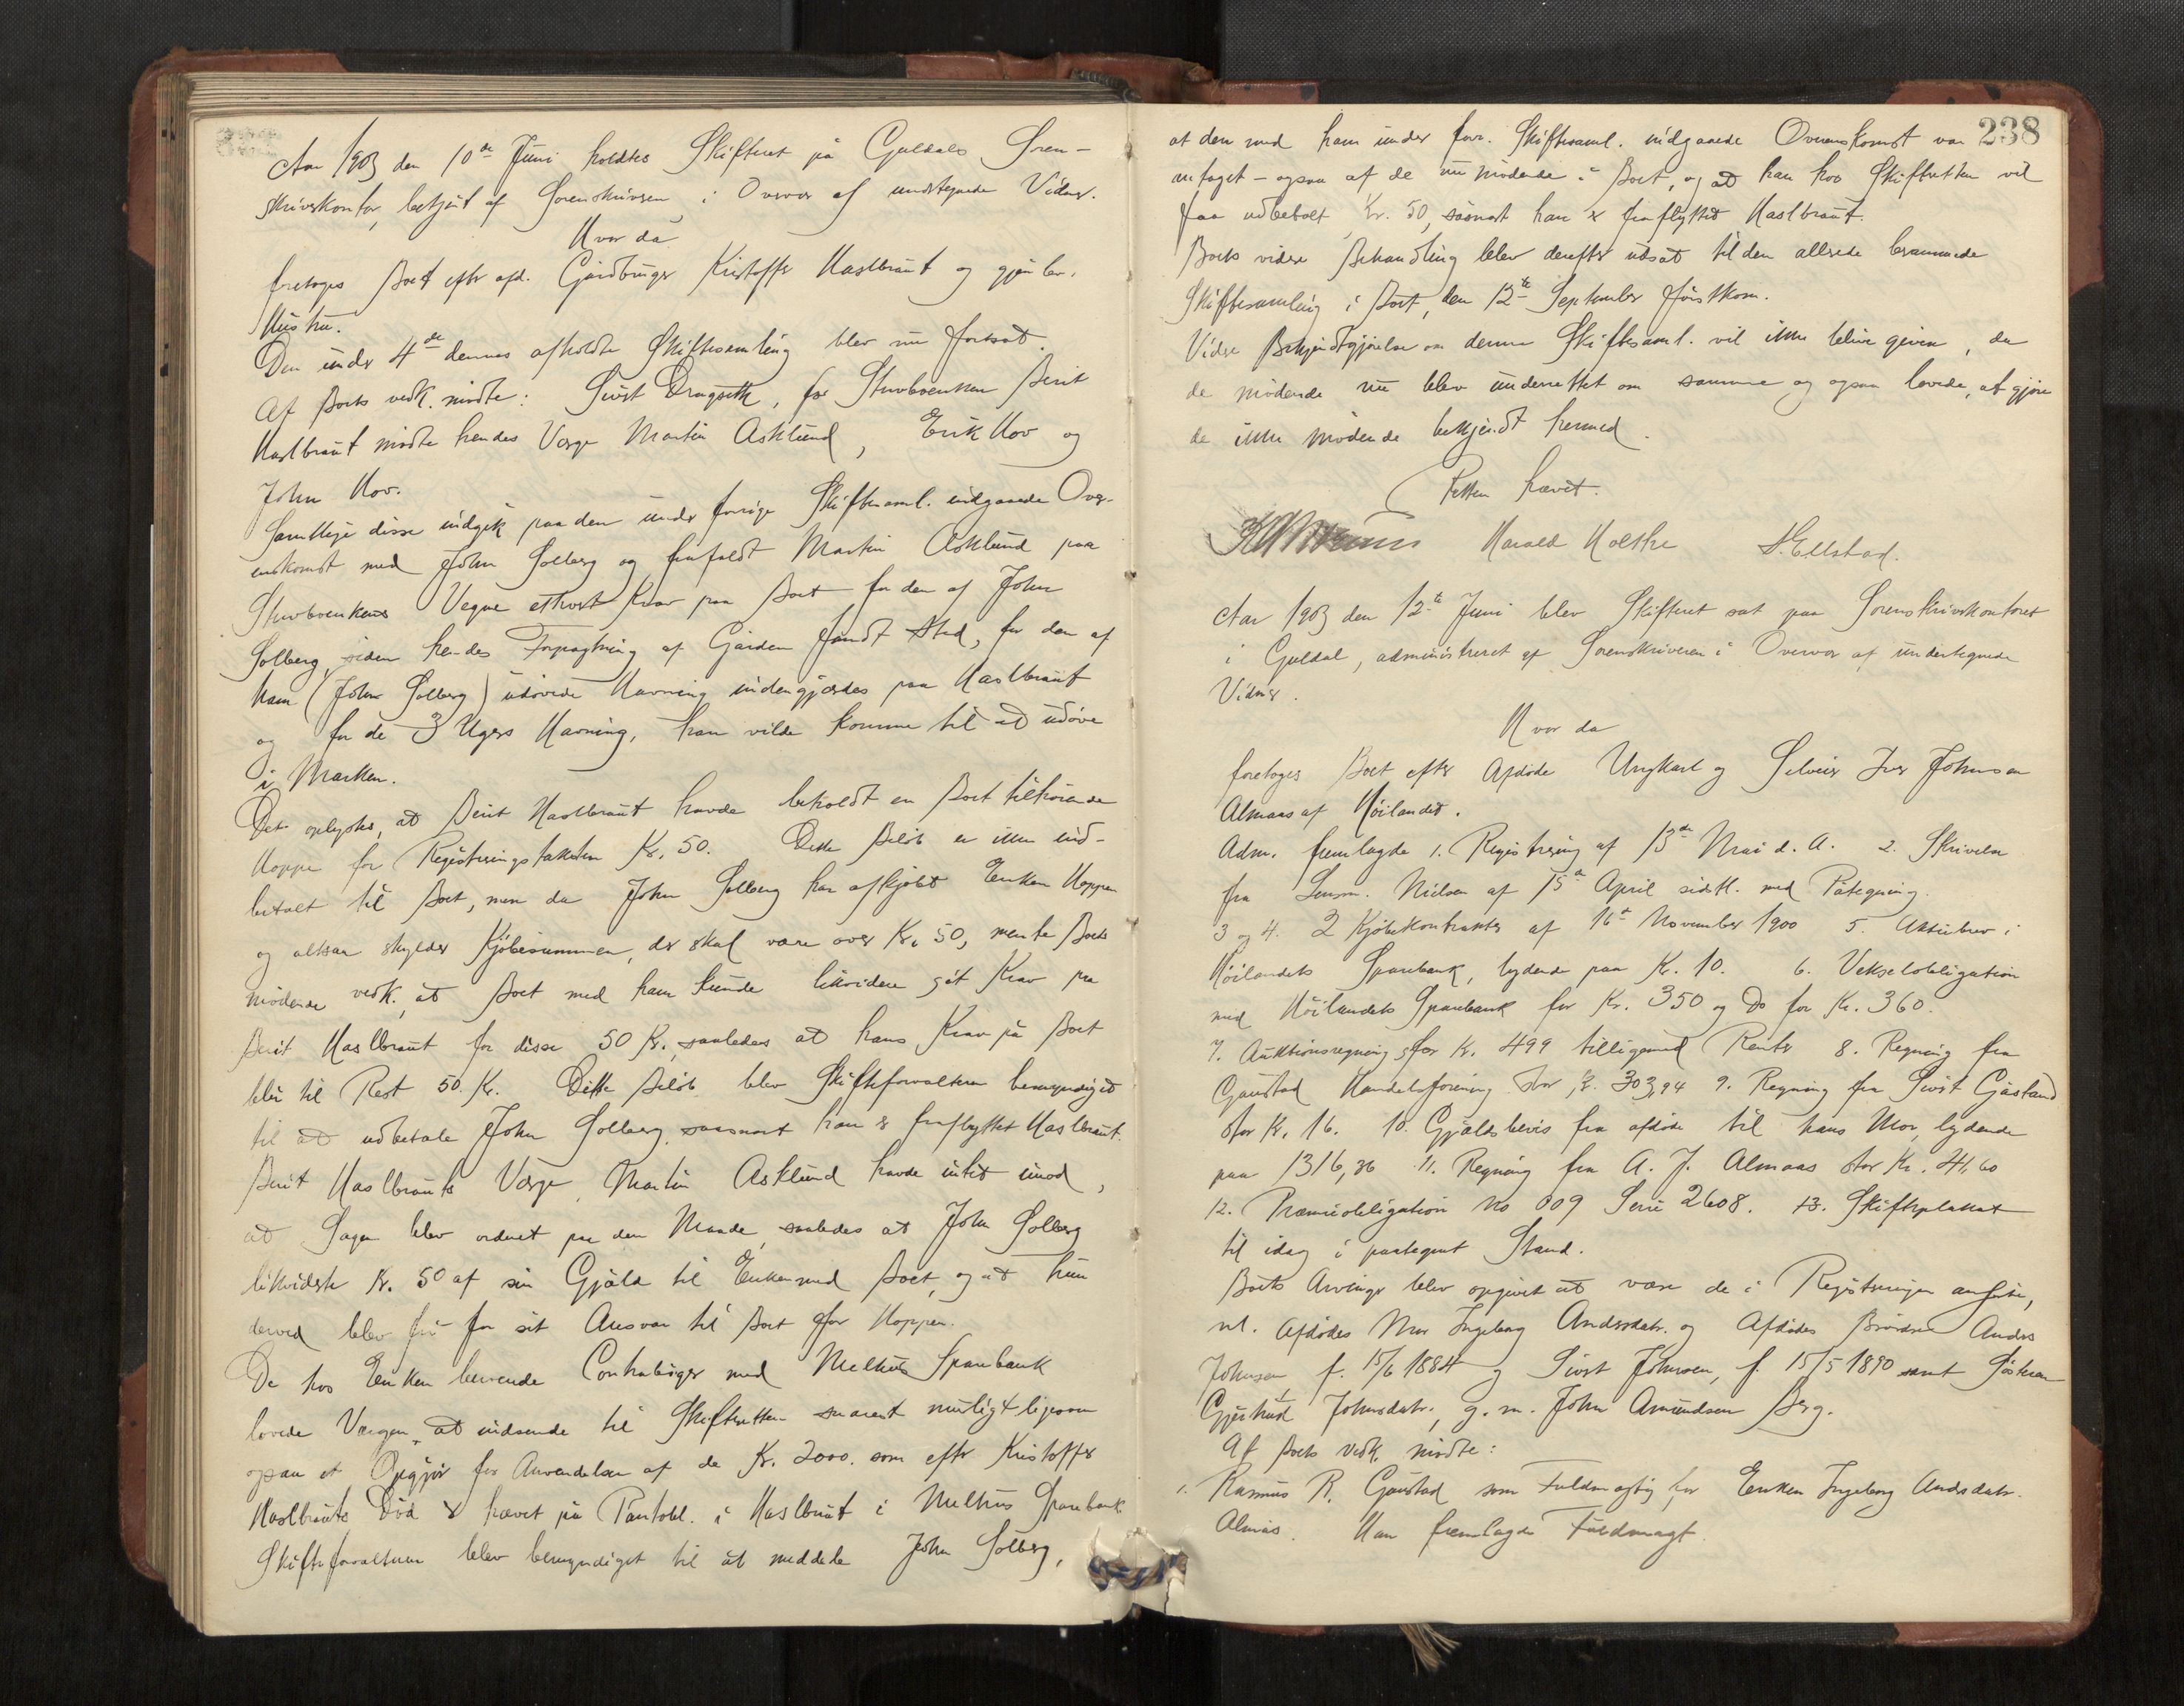 Aar 1903 den 10de Juni holdtes Skifteret på Guldals Soren-
skriverkontor, betjent af Sorenskriveren i Overvær af undertegnede Vidner.
Hvor da
foretoges Boet efter afd. Gårdbruger Kristoffer Haslbraut og gjenlev.
Hustru.
Den under 4de dennes afholdte Skiftesamling blev nu fortsat.
Af Boets vedk. mødte: Sivert Dragseth, for Sturboenken Berit
Haslbraut mødte hendes Værge Martin Asklund, Erik Hov og
John Hov.
Samtlige disse indgik paa den under forrige Skiftesaml. indgaaede Over-
enskomst med John Solberg og frafaldt Martin Asklund paa
Sturboenkens Vegne ethvert Krav paa Boet for den af John
Solberg, siden hendes Forpagtning af Gården fandt Sted, for den af
ham (John Solberg) udøvede Havning indengjærdes paa Haslbraut
og for de 3 Ugers Havning, han vilde komme til at udøve
i Marken.
Det oplystes, at Berit Haslbraut havde beholdt en Boet tilhørende
Hoppe for Registreringstaksten Kr. 50. Dette Beløb er ikke ind-
betalt til Boet, men da John Solberg har afkjøbt Enken Hoppen
og altsaa skylder Kjøbesummen, der skal være over Kr. 50, mente Boets
mødende vedk., at Boet med ham kunde likvidere sit Krav paa
Berit Haslbraut for disse 50 Kr., saaledes at hans Krav på Boet
blir til Rest 50 Kr. Dette Beløb blev Skifteforvalteren bemyndiget
til at udbetale John Solberg, saasnart han er fraflyttet Haslbraut.
Berit Haslbrauts Værge, Martin Asklund havde intet imod,
at Sagen blev ordnet paa den Maade, saaledes at John Solberg
likviderte Kr. 50 af sin Gjæld til Enken med Boet, og at hun
derved blev fri for sit Ansvar til Boet for Hoppen.
De hos Enken beroende Contrabøger med Melhus Sparebank
lovede Værgen at indsende til Skifteretten snarest muligt ligesom
ogsaa et Opgjør for Anvendelsen af de Kr. 2000. som efter Kristoffer
Haslbrauts Død er hævet på Pantobl. i Haslbraut i Melhus Sparebank
Skifteforvalteren blev bemyndiget til at meddele John Solberg,
238
at den med ham under forr. Skiftesaml. indgaaede Overenskomst var
antaget – ogsaa af de nu mødende i Boet, og at han hos Skifteretten vil
faa udbetalt Kr. 50, såsnart han er fraflyttet Haslbraut.
Boets videre Behandling blev derefter udsat til den allerede berammede
Skiftesamling i Boet, den 12te September førstkom.
Videre Bekjendtgjørelse om denne Skiftesaml. vil ikke blive given, da
de mødende nu blev underrettet om samme og ogsaa lovede, at gjøre
de ikke mødende bekjendt hermed.
Retten hævet.
Harald Moltke H. Ellstad.
Aar 1903 den 12te Juni blev Skifteret sat paa Sorenskriverkontoret
i Guldal, administreret af Sorenskriveren i Overvær af undertegnede
Vidner.
Hvor da
foretoges Boet efter Afdøde Ungkarl og Selveier Iver Johnsen
Almaas af Høilandet.
Adm. fremlagde 1. Registrering af 13de Mai d. A. 2. Skrivelse
fra Lensm. Nielsen af 15de April sidstl. med Påtegning.
3 og 4. 2 Kjøbekontrakter af 16de November 1900 5. Aktiebrev i
Høilandets Sparebank, lydende paa Kr. 10. 6. Vekselobligation
med Høilandets Sparebank for Kr. 350 og Do for Kr. 360.
7. Auktionsregning for Kr. 499 tilligemed Renter 8. Regning fra
Gaustad Handelsforening stor Kr. 303,94 9. Regning fra Sivert Gåstand
stor Kr. 16. 10. Gjældsbevis fra afdøde til hans Mor, lydende
paa 1316,36 11. Regning fra A. J. Almaas stor Kr. 41,60
12. Præmieobligation No 009 Serie 2608. 13. Skifteplakat
til idag i paategnet Stand.
Boets Arvinger blev opgivet at være de i Registreringen anførte,
nl. Afdødes Mor Ingeborg Andersdatr. og Afdødes Brødre Anders
Johnsen f. 15/6 1884 og Sivert Johnsen, f. 15/5 1890 samt Søsteren
Gjertrud Johnsdatr., g. m. John Amundsen Berg.
Af Boets vedk. mødte:
1. Rasmus R. Gaustad som Fuldmægtig for Enken Ingeborg Andersdatr.
Almås. Han fremlagde Fuldmagt.